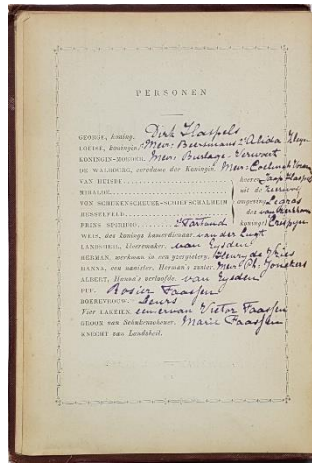 PERSONEN
GEORGE, koning. Dirk Haspels
LOUISE, koningin. Mevr: Beersmans & Alida Kleyn
KONINGIN-MOEDER. Mevr: Burlage-Verwoert
DE WALBURG, eeredame der Koningin. Mevr: Coelingh
VAN HEISET Jaap Haspels
MIRALOR
VON SCHUKENSCHEUER-SCHIESSCHALHEIM Legras
HESSELFELD van Kerckhoven
heeren uit de omgeving des konings. Crespijn
PRINS SIEGFRIED. Tartaud
WEIS, des konings kamerdienaar. van der Lugt
LANDSHEIL, IJzermaker. van Eysden
HERMAN, werkman in eene ijzergieterij. Henry de Vries
HANNA, een naaister, Herman's zuster. Mevr: Ph: Jonckers
ALBERT, Hanna's verloofde. van Eysden
PIT. Rosier Faassen
BOERENVROUW. Seurs
Vier LAKEIEN. een ervan Victor Faassen
GROOM van Schukenscheuer. Marie Faassen
KNECHT van Landsheil.